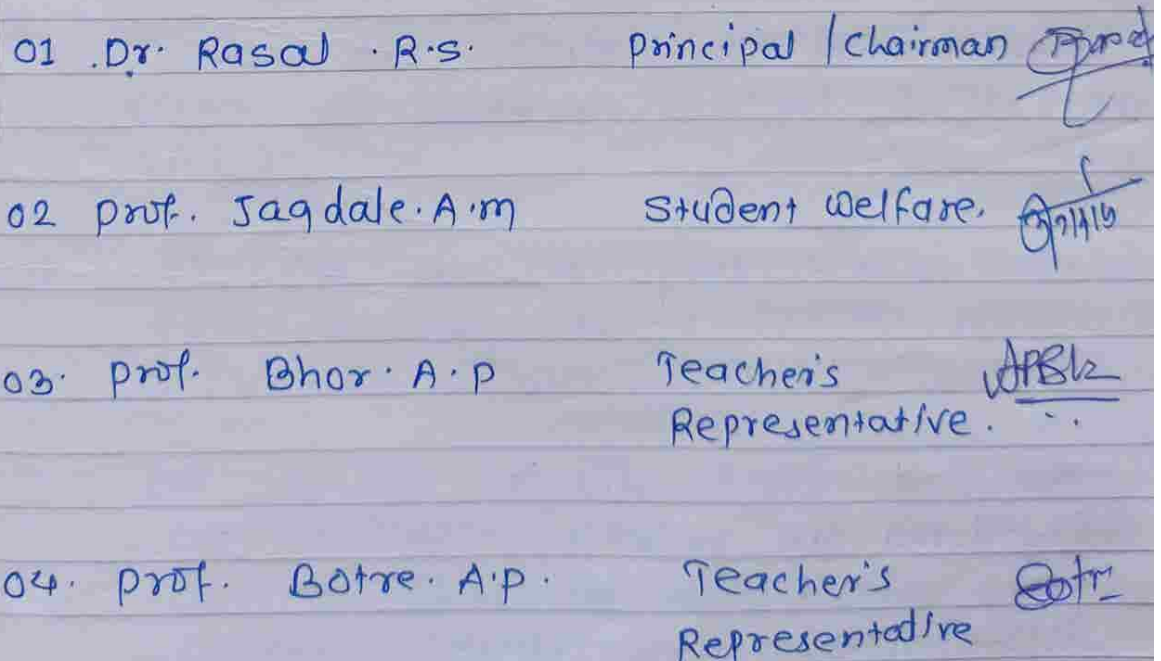 01 .Dr. Rasal . R.S. principal / chairman
02 prof. Jagdale. A.m student welfare.
03. prof. Bhor. A.P Teacher's
Representative.
04. prof. Botre. A.p. Teacher's
Representative